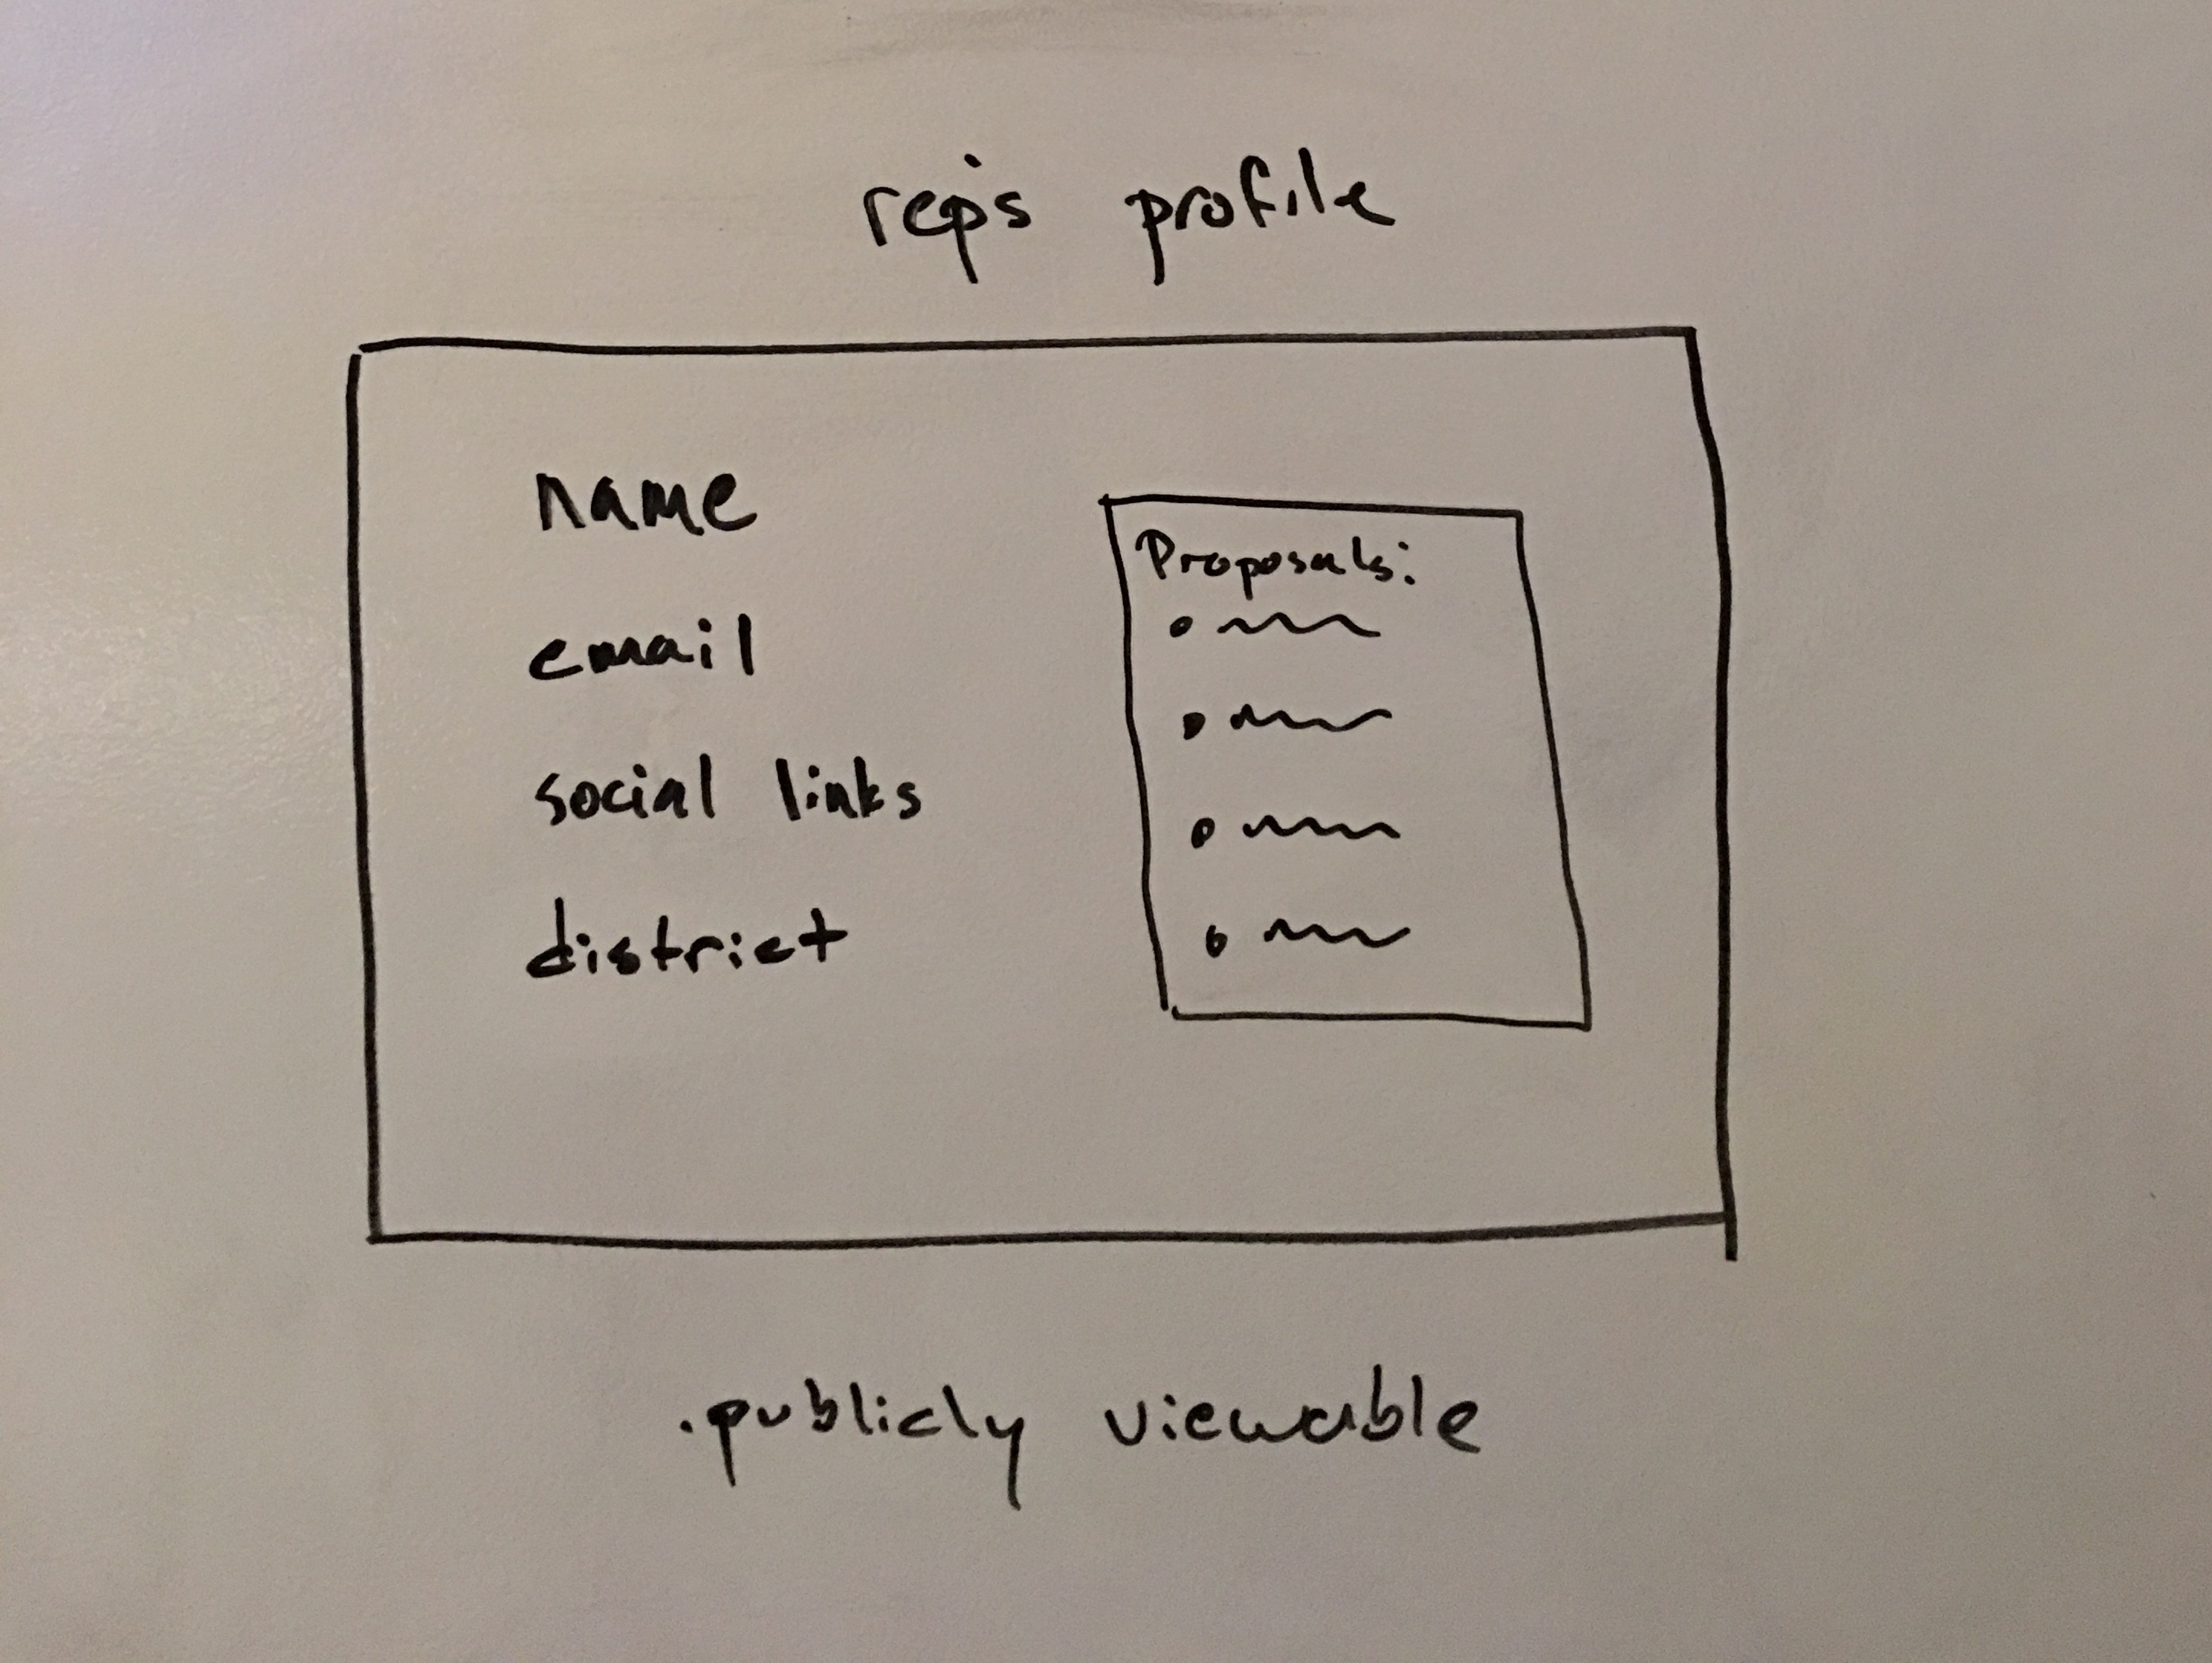 rep's profile
name
email
social links
district
Proposals:
.publicly viewable